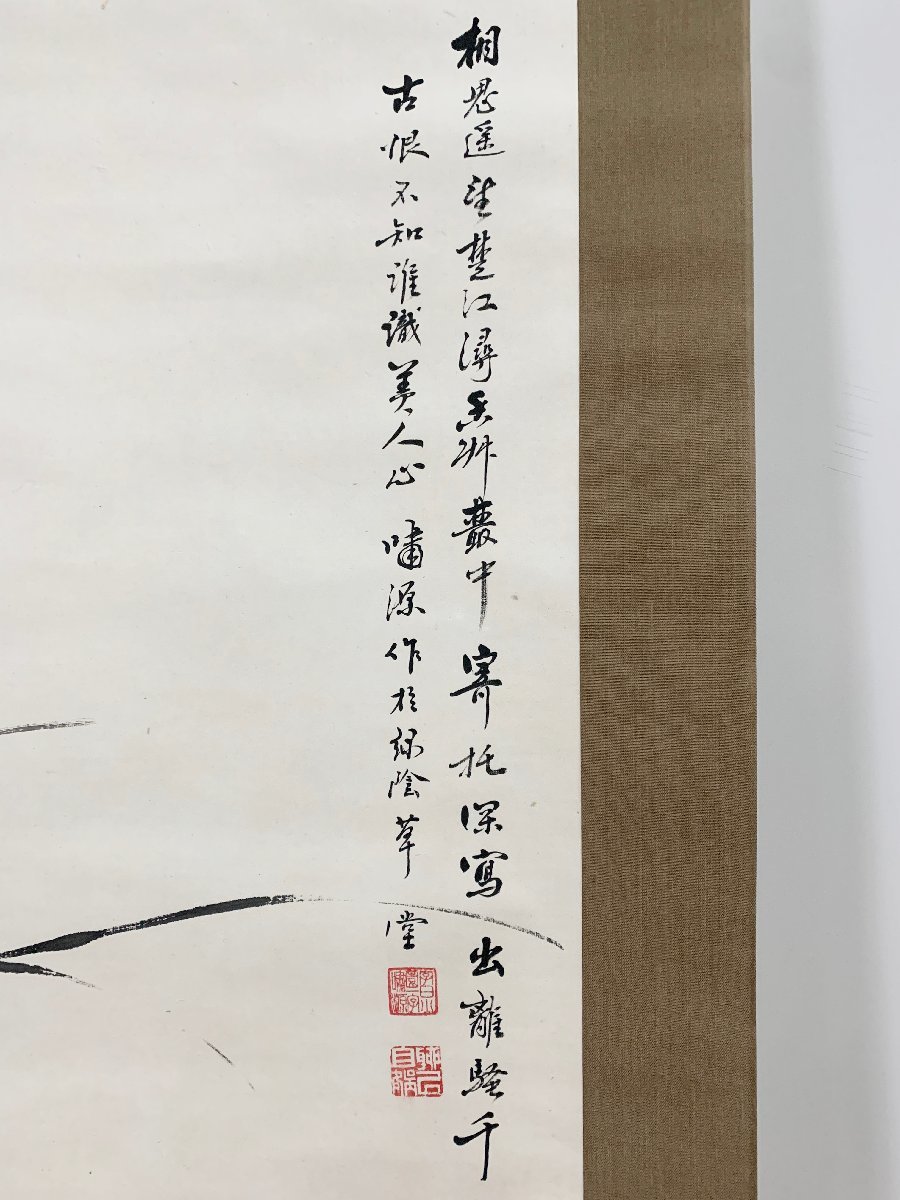 相思遥望楚江潯香艸叢中寄托深寫出離騷千
古恨不知誰識美人心 嘯源作於緑陰草堂